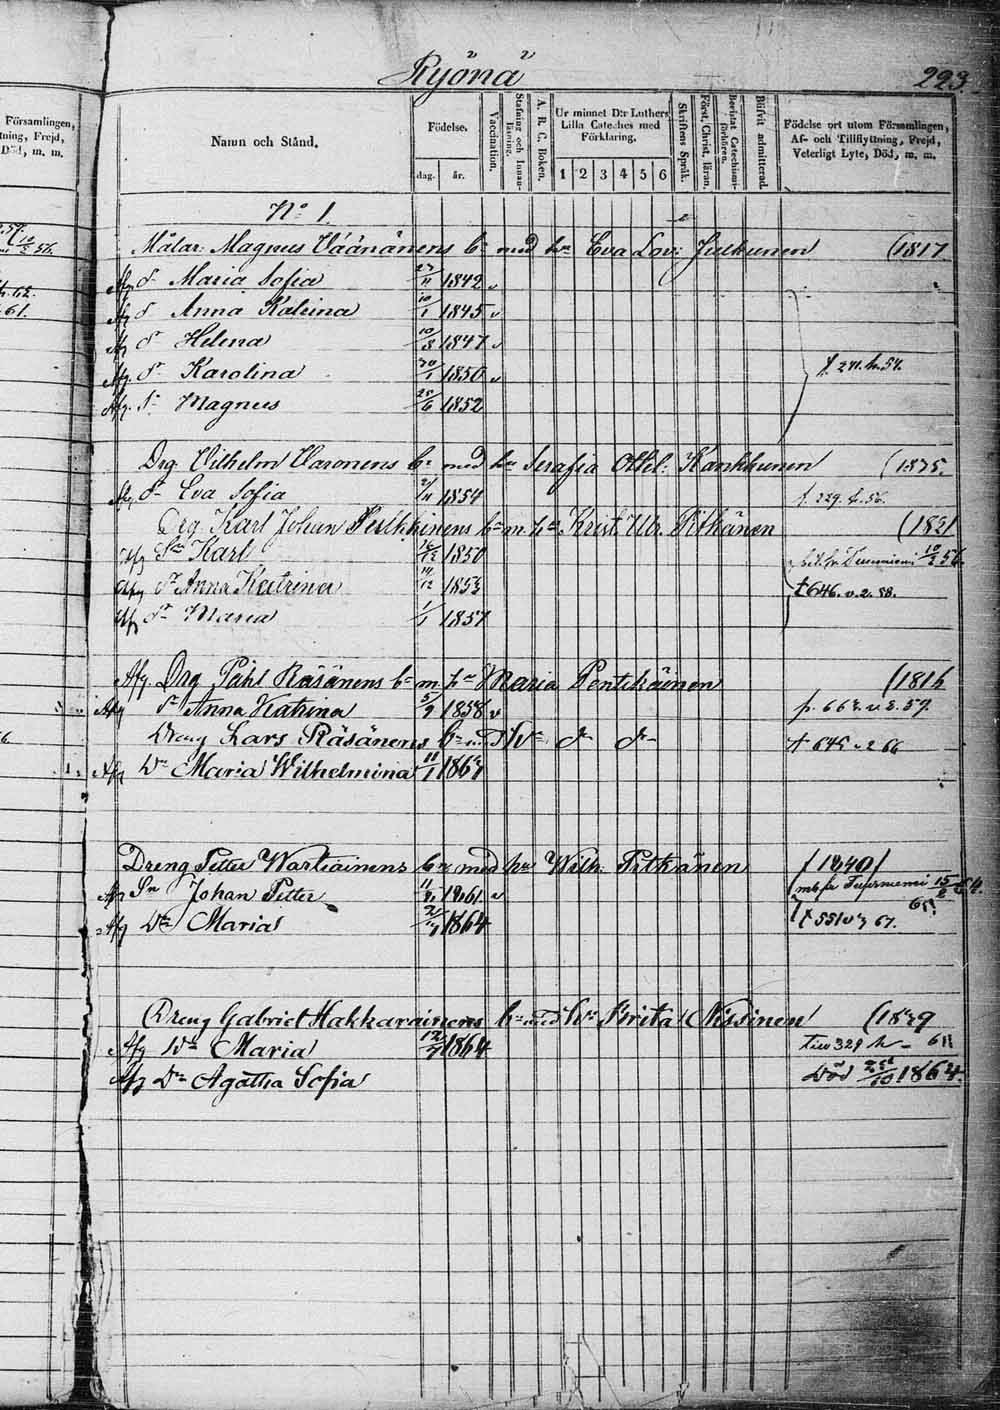 Ryönä
223.
Församlingen,
tning, Frejd,
Död, m. m.
Namn och Stånd.
Födelse.
dag. år.
Vaccination.
Stafning och Innan-läsning.
A. B. C. Boken.
Ur minnet D:r Luthers
Lilla Cateches med
Förklaring.
1 2 3 4 5 6
Skriftens Språk.
Först. Christ. läran.
Bevistat Catechismi-förhören.
Blifvit admitterad.
Födelse ort utom Församlingen,
Af- och Tillflyttning, Frejd,
Veterligt Lyte, Död, m. m.
No 1
Målar: Magnus Väänänens b:n med hu Eva Lov: Julkunen (1817
Afg d:r Maria Sofia 27/11 1842 v
Afg d:r Anna Katrina 10/1 1845 v
Afg d:r Helena 10/8 1847 v
Afg. d:r Karolina 30/1 1850 v
f. 241. h. 54.
Afg. S:n Magnus 25/6 1852
Drg. Vilhelm Waronens b:n med hu Serafia Othil: Kankkunen (1875.
Afg d:r Eva Sofia 21/11 1854 f. 229. h. 56.
Drg. Karl Johan Pulkkinens b:n m. hu Krist. Ulr. Pitkänen (1821
Afg S:n Karl 1850 10/2 56.
Afg d:r Anna Katrina 14/12 1853 † 646. v. 2. 58.
Afg d:r Maria 1/1 1857
Afg. Drg Påhl Räsänens b:n m. hu Maria Pentikäinen (1816
Afg d:r Anna Katrina 5/9 1858 v p. 663. v. 2. 59.
Dreng Lars Räsänens b:n med Hu d:o d:o † 645 v 2 66
Afg D:r Maria Wilhelmina 11/1 1863
Dreng Petter Wartiainens b:n med hu Wilh: Pitkänen (1840)
Afg S:n Johan Petter 1861 v 15/2 64.
Afg D:r Maria 1864 † 551 v 3 67.
Dreng Gabriel Hakkarainens b:n med Hu Brita Nissinen (1839
Afg D:r Maria 12/7 1864 329
Afg D:r Agatha Sofia Död 1864.